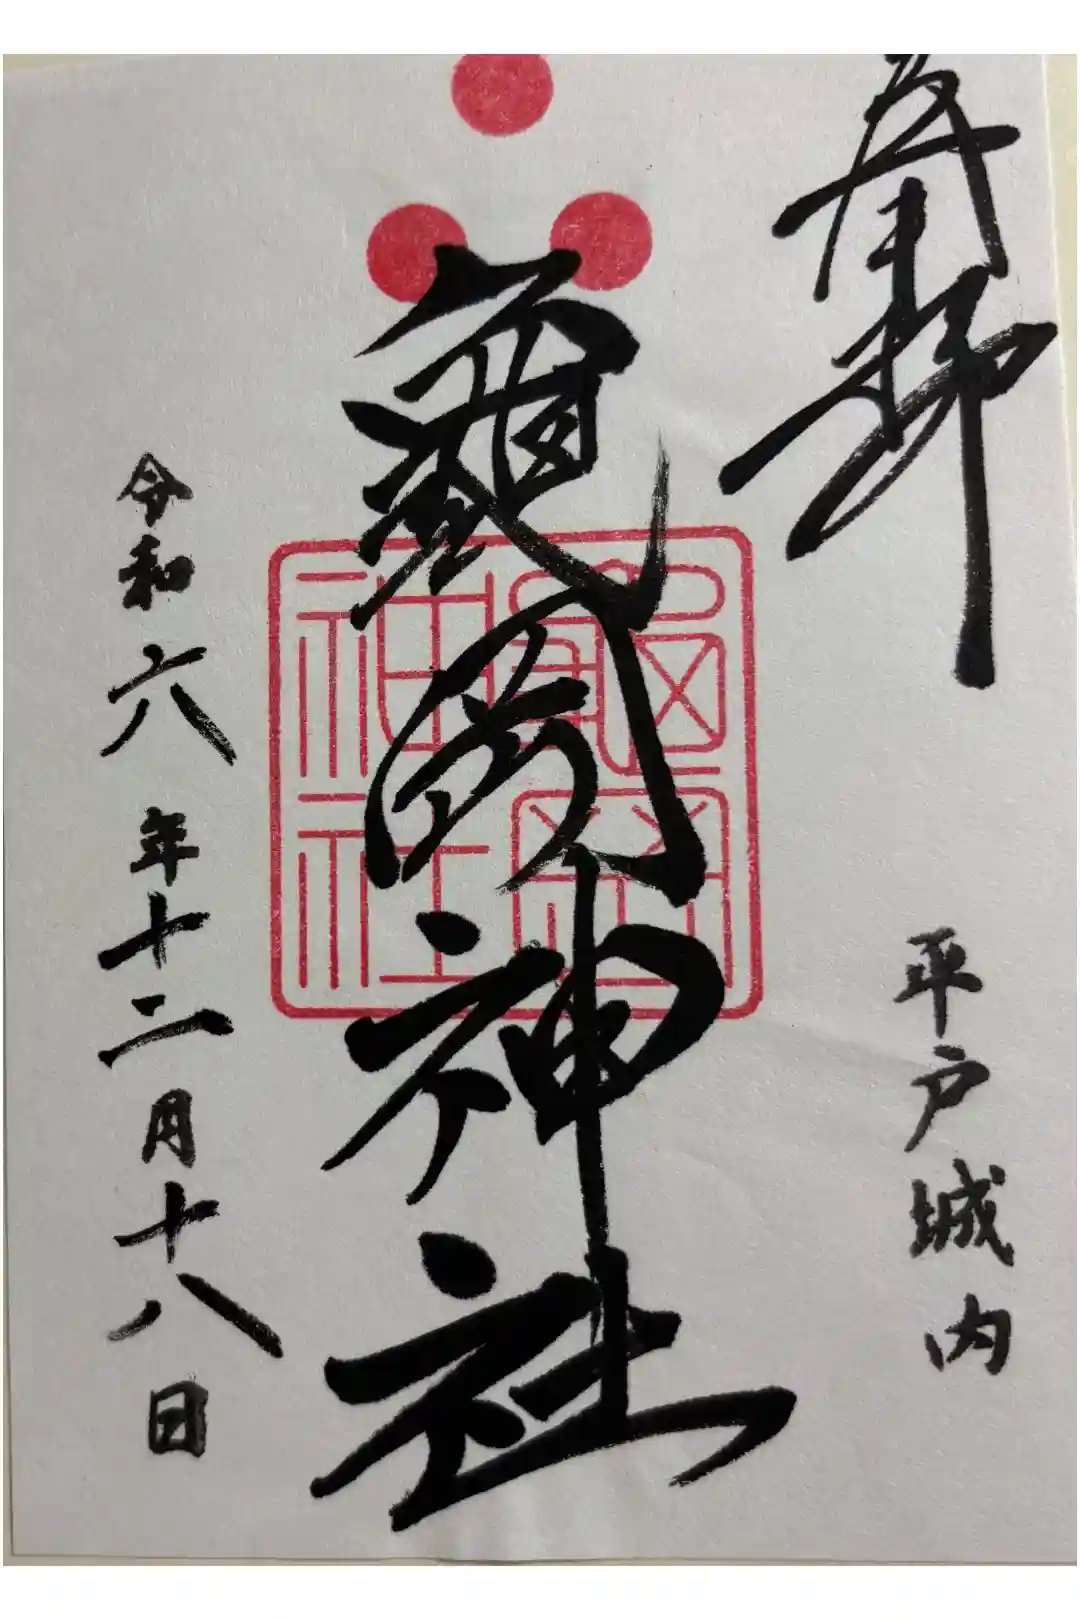 奉拝
平戸城内
亀岡神社
亀岡神社
令和六年十二月十八日